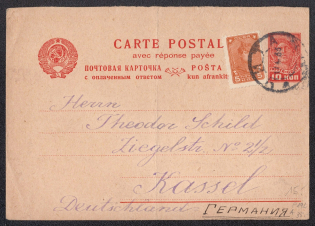 CARTE POSTALE
avec réponse payée
ПОЧТОВАЯ КАРТОЧКА POŠTA
с оплаченным ответом kun afrankit
10 КОП
Herrn
Theodor Schild
Ziegelstr. No 2½
Kassel
Deutschland ГЕРМАНИЯ